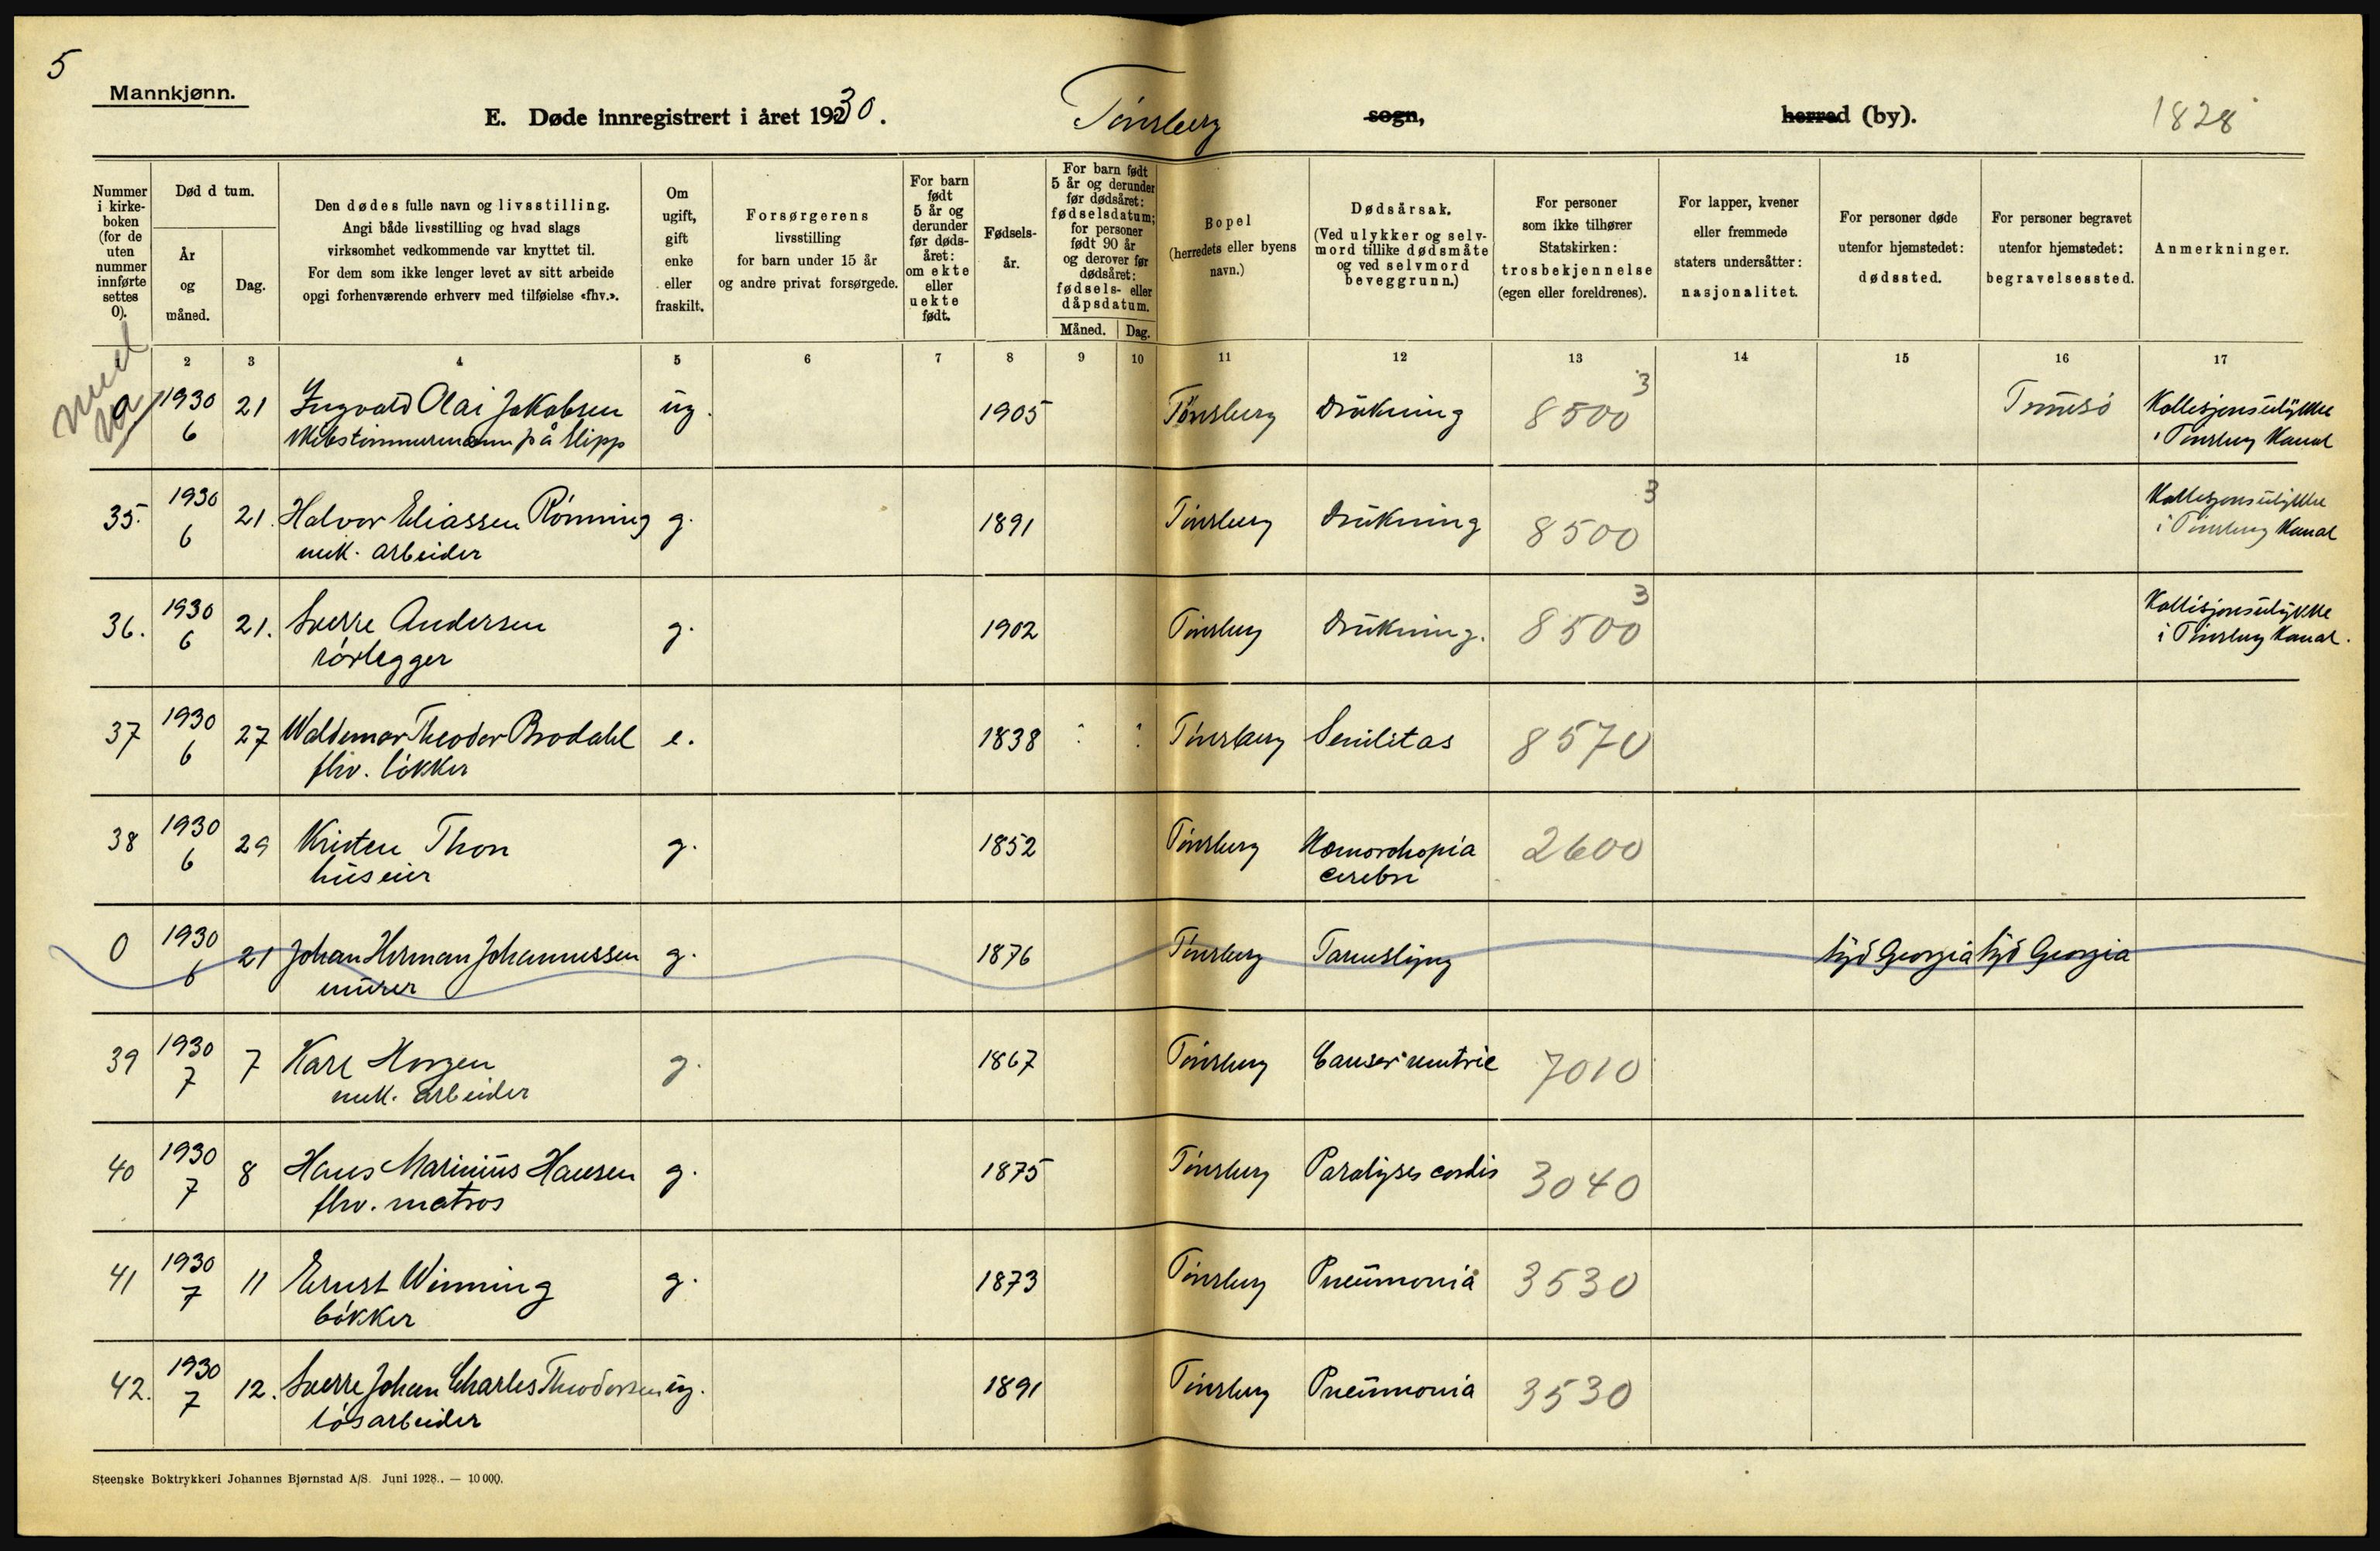 5
Mannkjønn.
E. Døde innregistrert i året 1930.
Tønsberg
sogn,
herred (by).
1828
Nummer i kirke-boken (for de uten nummer innførte settes 0).
Død d tum.
År og måned.
Dag.
Den dødes fulle navn og livsstilling.
Angi både livsstilling og hvad slags
virksomhet vedkommende var knyttet til.
For dem som ikke lenger levet av sitt arbeide
opgi forhenværende erhverv med tilføielse «fhv.».
Om ugift, gift enke eller fraskilt.
Forsørgerens
livsstilling
for barn under 15 år
og andre privat forsørgede.
For barn født 5 år og derunder før døds-året: om ekte eller uekte født.
Fødsels-år.
For barn født 5 år og derunder før dødsåret: fødselsdatum; for personer født 90 år og derover før dødsåret: fødsels- eller dåpsdatum.
Måned. Dag.
Bopel
(herredets eller byens
navn.)
Dødsårsak.
(Ved ulykker og selv-
mord tillike dødsmåte
og ved selvmord
beveggrunn.)
For personer
som ikke tilhører
Statskirken:
trosbekjennelse
(egen eller foreldrenes).
For lapper, kvener
eller fremmede
staters undersåtter:
nasjonalitet.
For personer døde
utenfor hjemstedet:
dødssted.
For personer begravet
utenfor hjemstedet:
begravelsessted.
Anmerkninger.
2 3 4 5 6 7 8 9 10 11 12 13 14 15 16 17
1930 6 21 Ingvald Olai Jakobsen ug. 1905 Tønsberg Drukning 8500 3 Tromsö Kollisjonsulykke
på slipp i Tønsberg Kanal
35. 1930 6 21. Halvor Eliassen Rønning g. 1891 Tønsberg Drukning 8500 3 Kollisjonsulykke
mek. arbeider i Tønsberg Kanal
36. 1930 6 21. Sverre Andersen g. 1902 Tønsberg Drukning. 8500 3 Kollisjonsulykke
rørlegger i Tønsberg Kanal.
37 1930 6 27 Waldemar Theodor Brodahl e. 1838 Tønsberg Senilitas 8570
fhv. bøkker
38 1930 6 29 Kristen Thon g. 1852 Tønsberg Hæmorrhagia 2600
huseier cerebri
0 1930 6 21 Johan Herman Johannessen g. 1876 Tønsberg Tarmslyng Syd Georgia Syd Georgia
murer
39 1930 7 7 Karl Horgen g. 1867 Tønsberg Cancer ventric 7010
mek. arbeider
40 1930 7 8 Hans Marinius Hansen g. 1875 Tønsberg Paralyses cordis 3040
fhv. matros
41 1930 7 11 Ernst Winning g. 1873 Tønsberg Pneumonia 3530
bøkker
42. 1930 7 12. Sverre Johan Charles Theodorsen ug. 1891 Tønsberg Pneumonia 3530
løsarbeider
Steenske Boktrykkeri Johannes Bjørnstad A/S. Juni 1928. — 10 000.